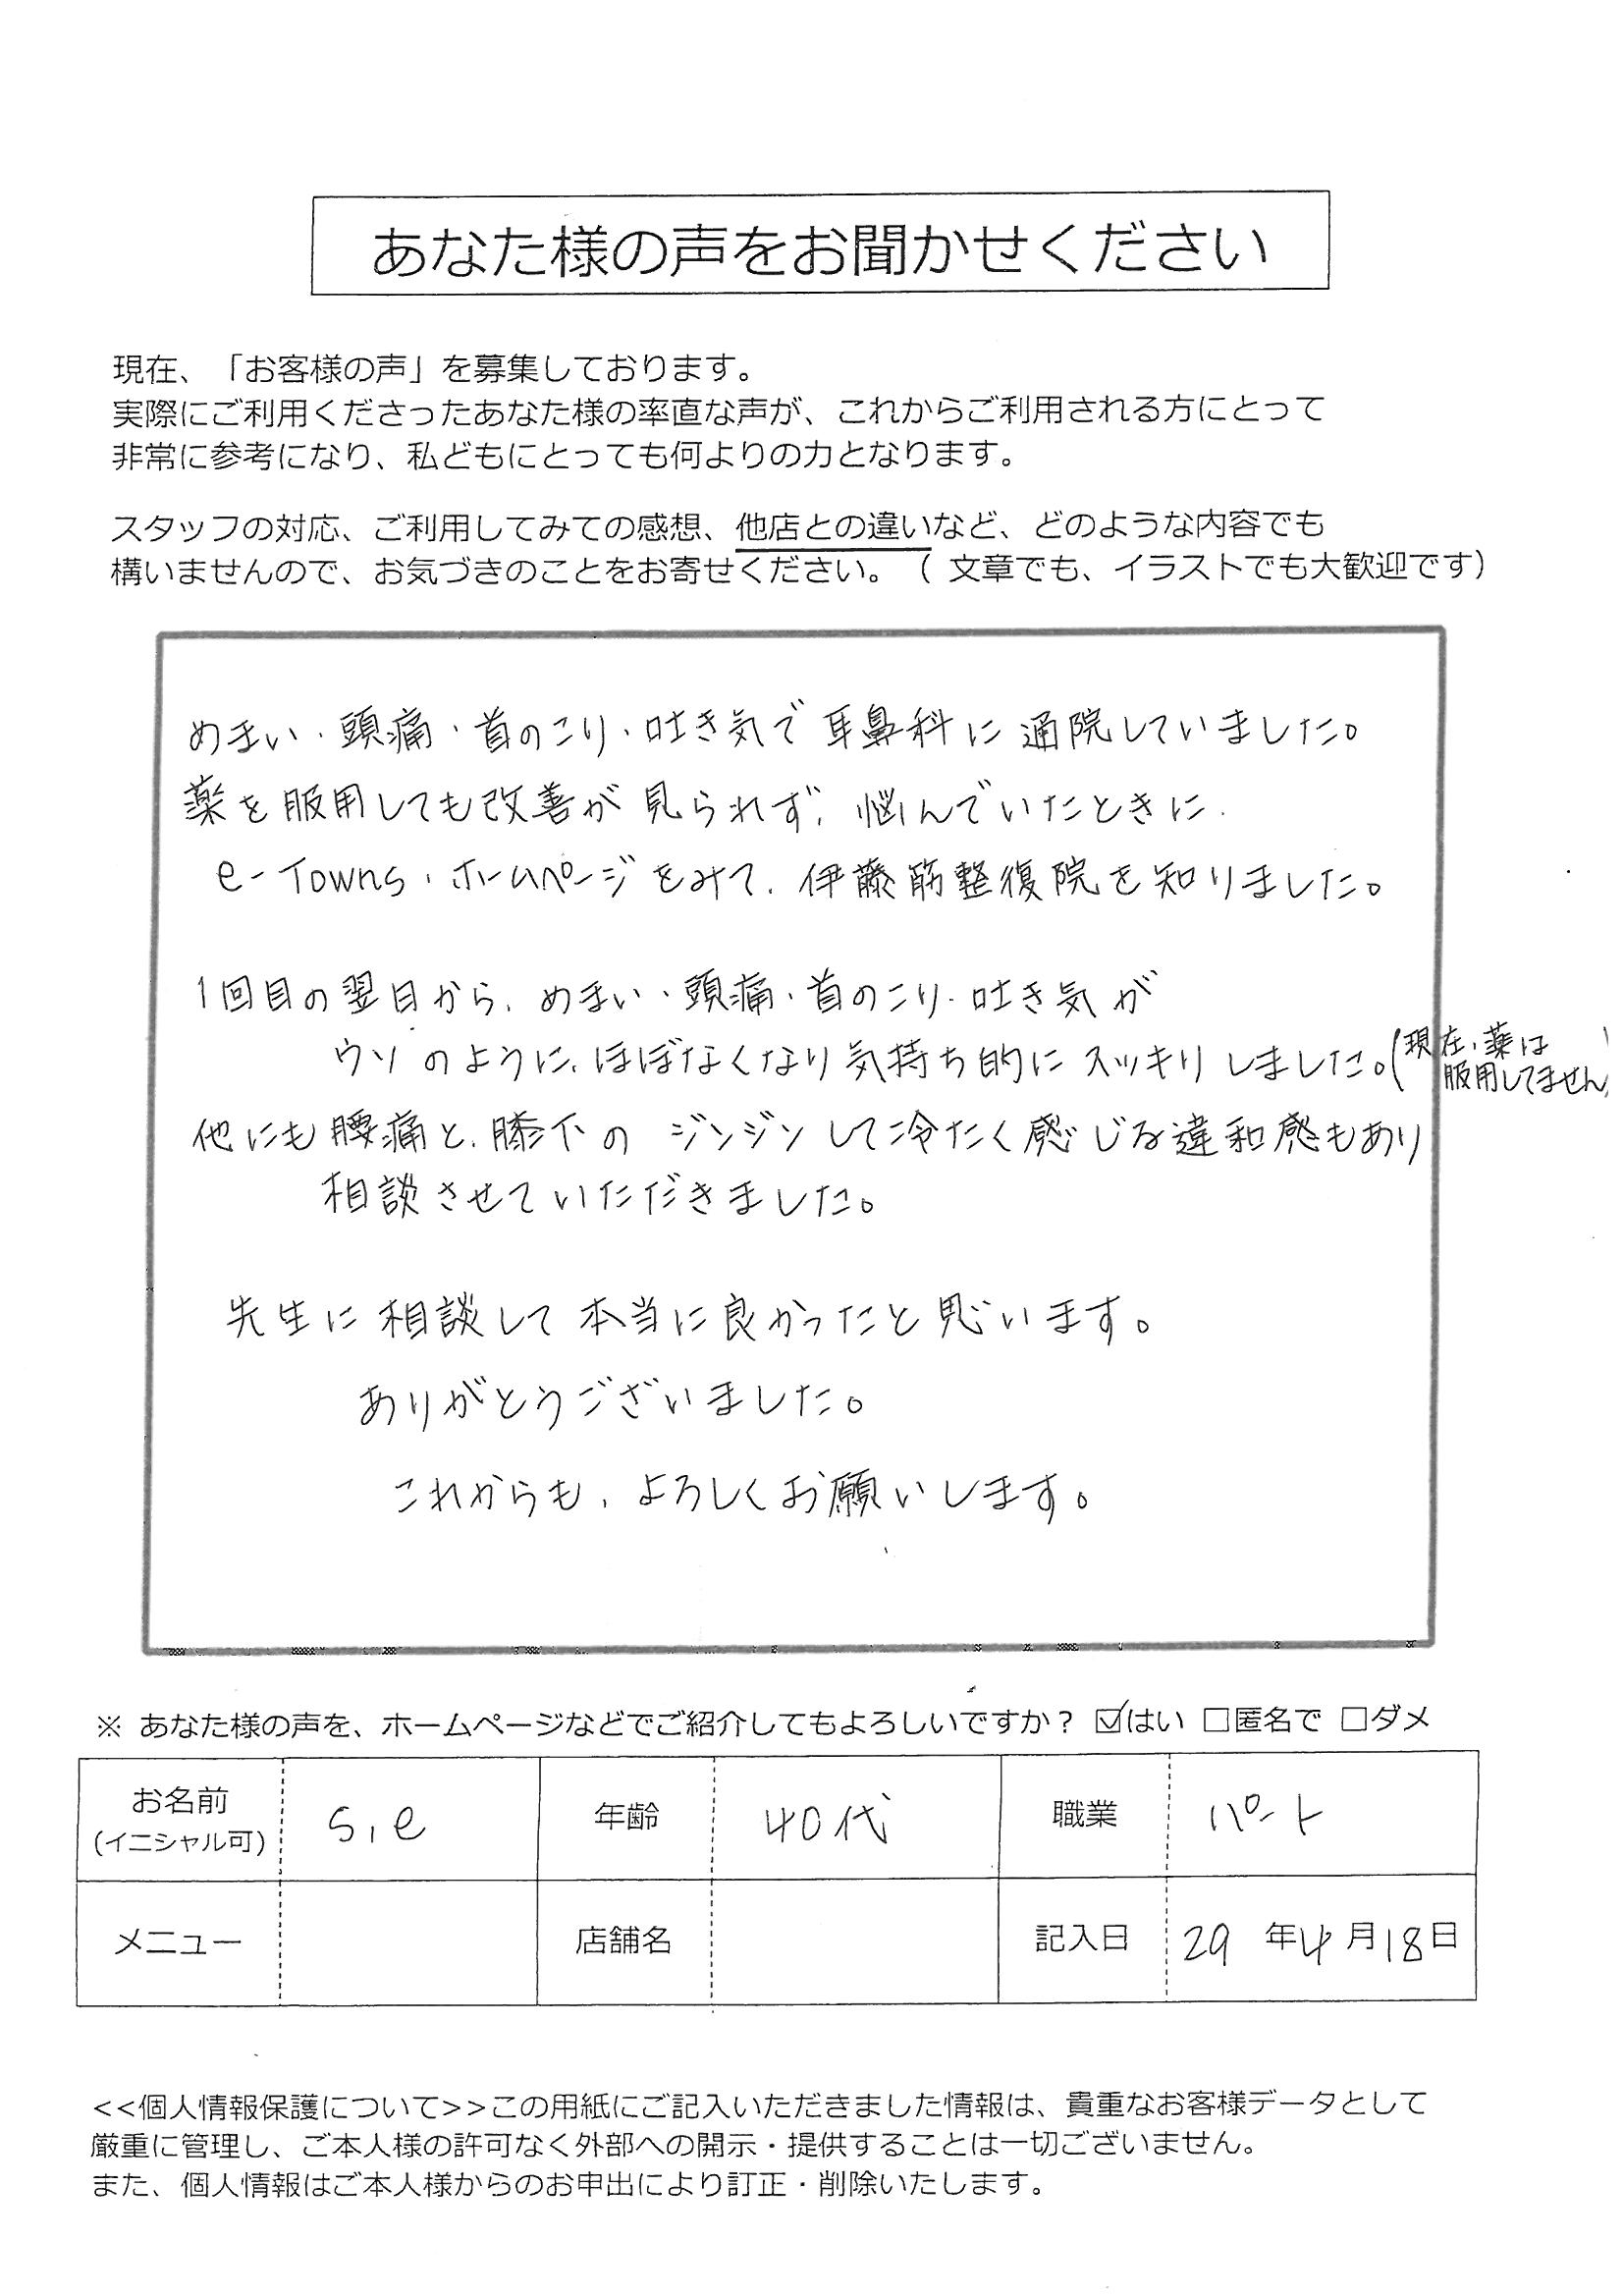 あなた様の声をお聞かせください
現在、「お客様の声」を募集しております。
実際にご利用くださったあなた様の率直な声が、これからご利用される方にとって
非常に参考になり、私どもにとっても何よりの力となります。
スタッフの対応、ご利用してみての感想、他店との違いなど、どのような内容でも
構いませんので、お気づきのことをお寄せください。（ 文章でも、イラストでも大歓迎です）
めまい・頭痛・首のこり・吐き気で耳鼻科に通院していました。
薬を服用しても改善が見られず、悩んでいたときに、
e-Towns・ホームページをみて、伊藤筋整復院を知りました。
1回目の翌日から、めまい・頭痛・首のこり・吐き気が
ウソのように、ほぼなくなり気持ち的にスッキリしました。(現在、薬は
服用してません)
他にも腰痛と、膝下のジンジンして冷たく感じる違和感もあり
相談させていただきました。
先生に相談して本当に良かったと思います。
ありがとうございました。
これからも、よろしくお願いします。
※ あなた様の声を、ホームページなどでご紹介してもよろしいですか？ ☑はい □匿名で □ダメ
お名前 S,e 年齢 40代 職業 パート
(イニシャル可)
メニュー 店舗名 記入日 29 年4月18日
<<個人情報保護について>>この用紙にご記入いただきました情報は、貴重なお客様データとして
厳重に管理し、ご本人様の許可なく外部への開示・提供することは一切ございません。
また、個人情報はご本人様からのお申出により訂正・削除いたします。